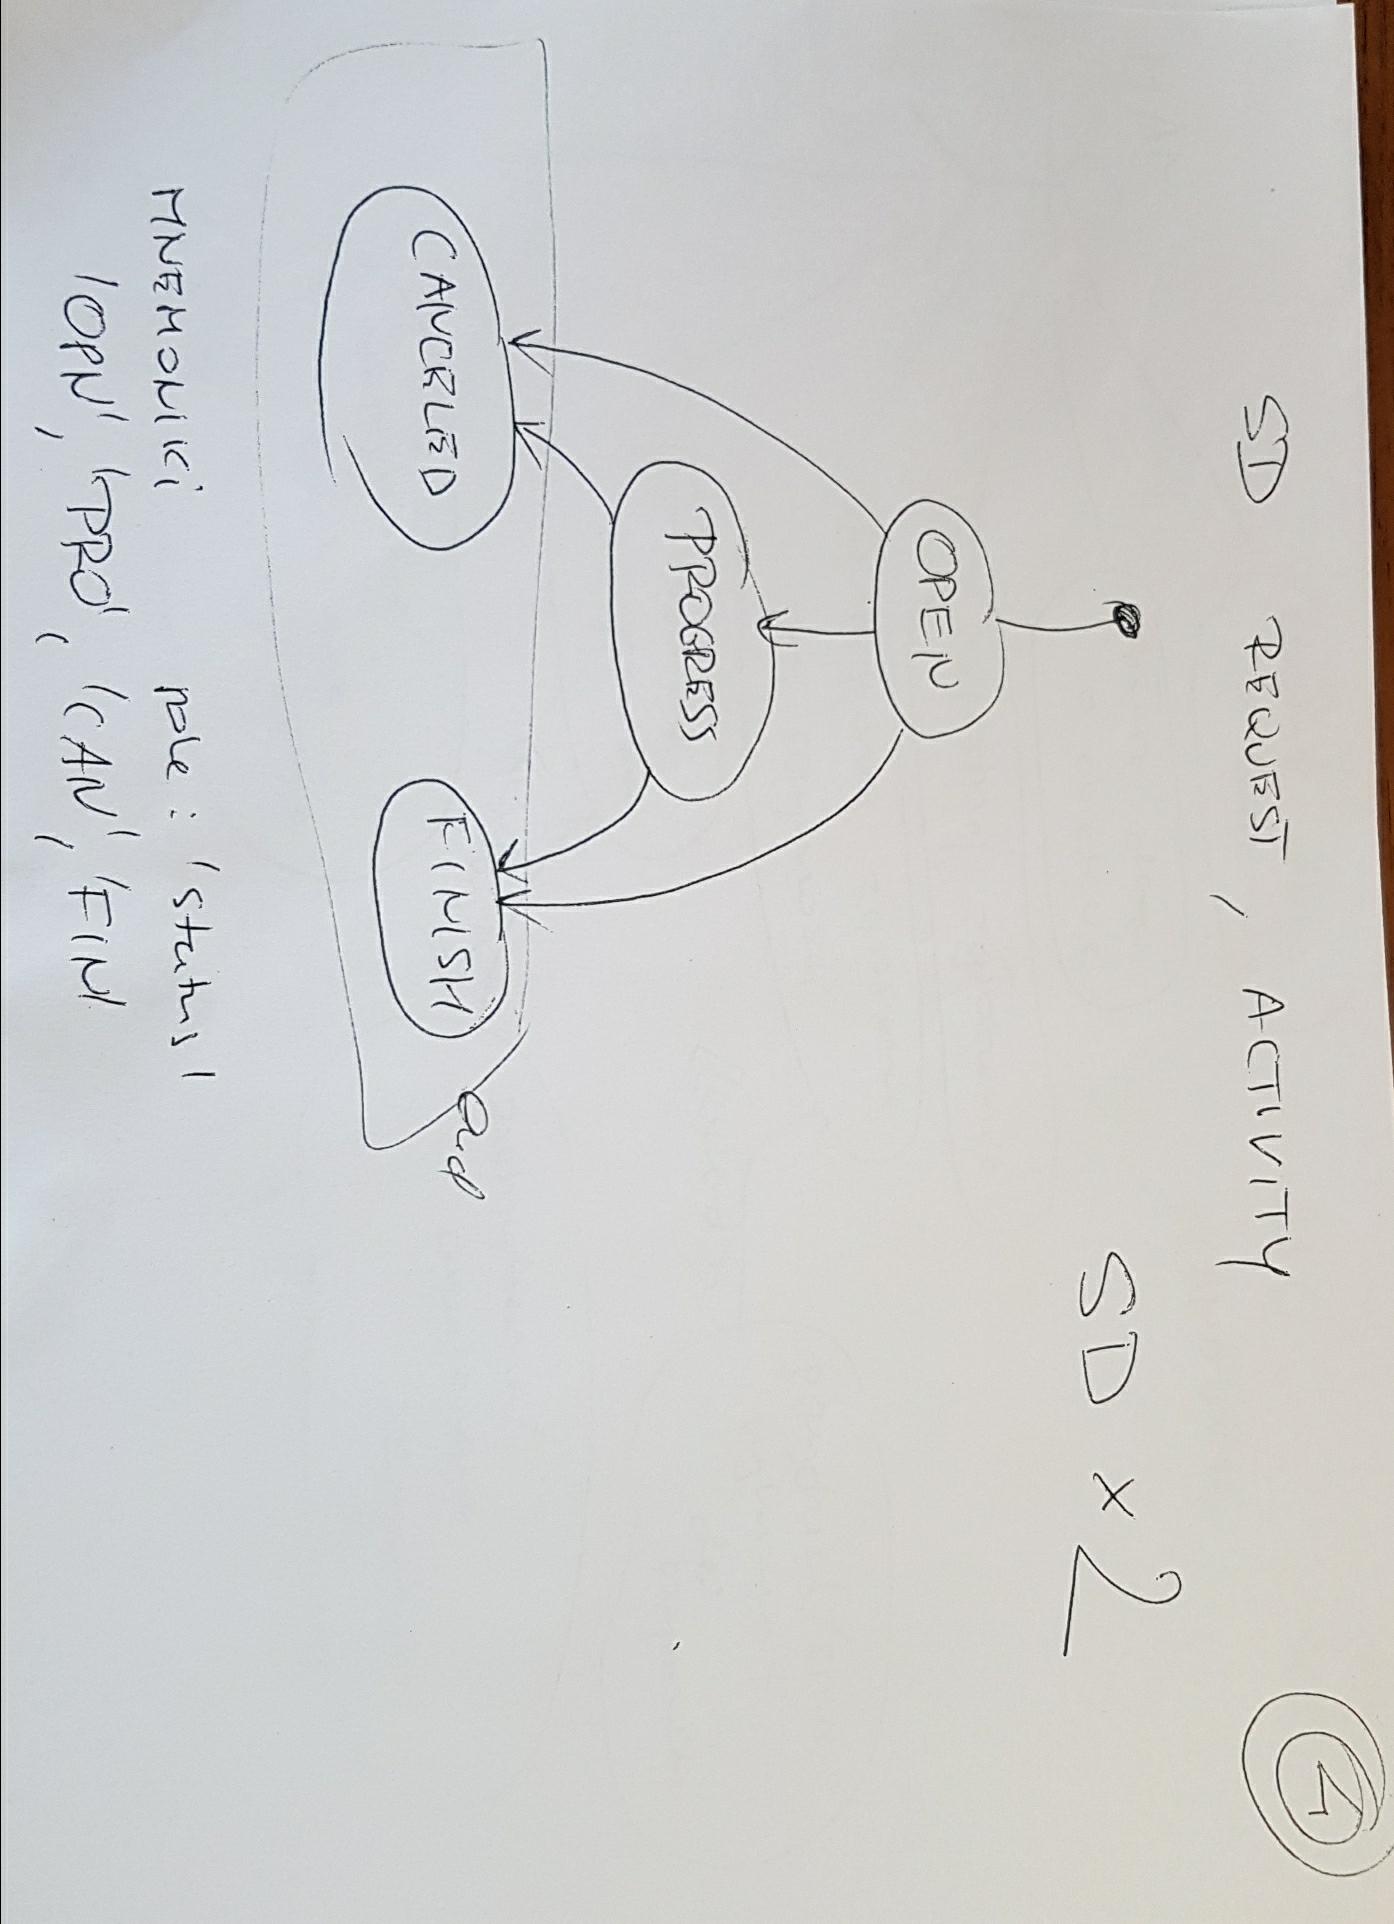 SD REQUEST, ACTIVITY
SD x 2
2
OPEN
PROGRESS
CANCELED
FINISH
end
MNEMONIKI pole: 'status'
'OPN', 'PRO', 'CAN', 'FIN